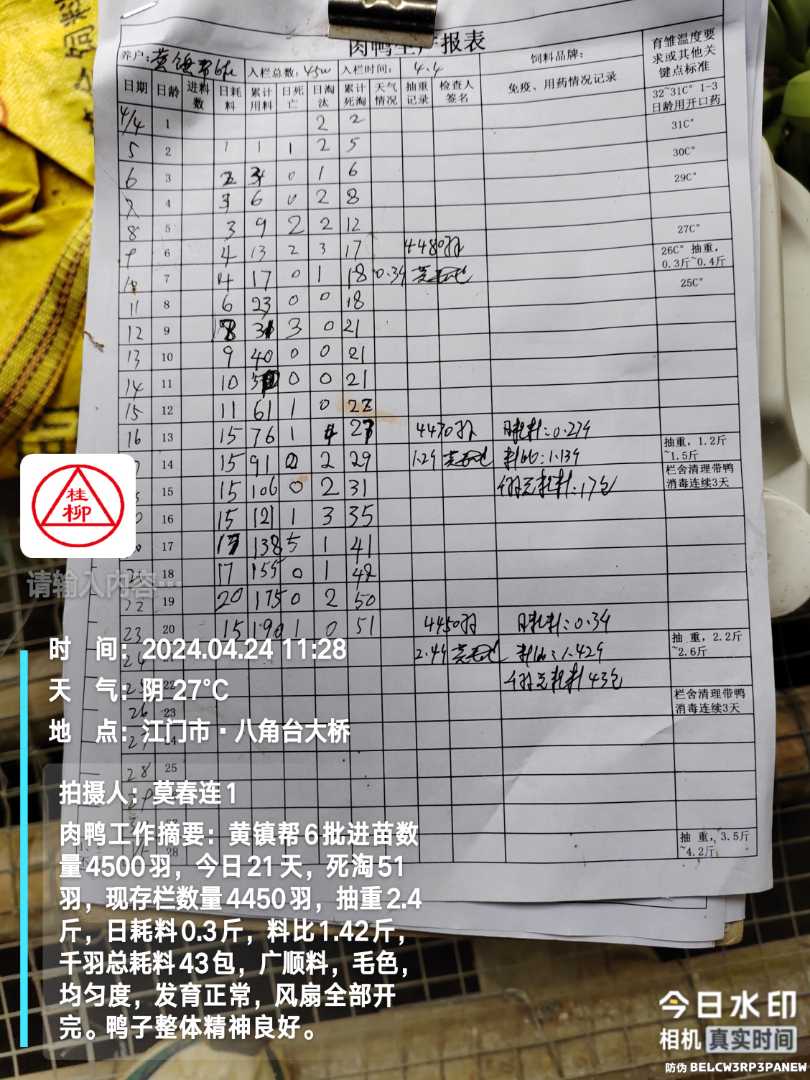 肉鸭生产报表
养户: 黄镇帮6批 入栏总数: 4500 入栏时间: 4.4 饲料品牌: 育雏温度要求或其他关键点标准
日期 日龄 进料数 日耗料 累计用料 日死亡 日淘汰 累计死淘 天气情况 抽重记录 检查人签名 免疫、用药情况记录
32~31C° 1-3日龄用开口药
4/4 1 2 2 31C°
5 2 1 1 1 2 5 30C°
6 3 2 0 1 6 29C°
7 4 3 6 0 2 8
8 5 3 9 2 2 12 27C°
9 6 4 13 2 3 17 4480羽 26C° 抽重,0.3斤~0.4斤
10 7 4 17 0 1 18 0.39 25C°
11 8 6 23 0 0 18
12 9 8 31 3 0 21
13 10 9 40 0 0 21
14 11 10 50 0 0 21
15 12 11 61 1 0 22
16 13 15 76 1 4 27 4470羽 日耗料:0.279 抽重,1.2斤~1.5斤
14 15 91 0 2 29 1.29 料比:1.139 栏舍清理带鸭消毒连续3天
15 15 106 0 2 31 千羽总耗料:17包
16 15 121 1 3 35
17 17 138 5 1 41
18 17 155 0 1 48
22 19 20 175 0 2 50
23 20 15 190 1 0 51 4450羽 日耗料:0.39 抽重,2.2斤~2.6斤
2.49 料比:1.429
千羽总耗料43包 栏舍清理带鸭消毒连续3天
26 23
27
28 25
抽重,3.5斤~4.2斤
28
桂柳
请输入内容…
时 间: 2024.04.24 11:28
天 气: 阴 27℃
地 点: 江门市·八角台大桥
拍摄人: 莫春连1
肉鸭工作摘要: 黄镇帮6批进苗数
量4500羽, 今日21天, 死淘51
羽, 现存栏数量4450羽, 抽重2.4
斤, 日耗料0.3斤, 料比1.42斤,
千羽总耗料43包, 广顺料, 毛色,
均匀度, 发育正常, 风扇全部开
完。鸭子整体精神良好。
今日水印
相机 真实时间
防伪 BELCW3RP3PANEW